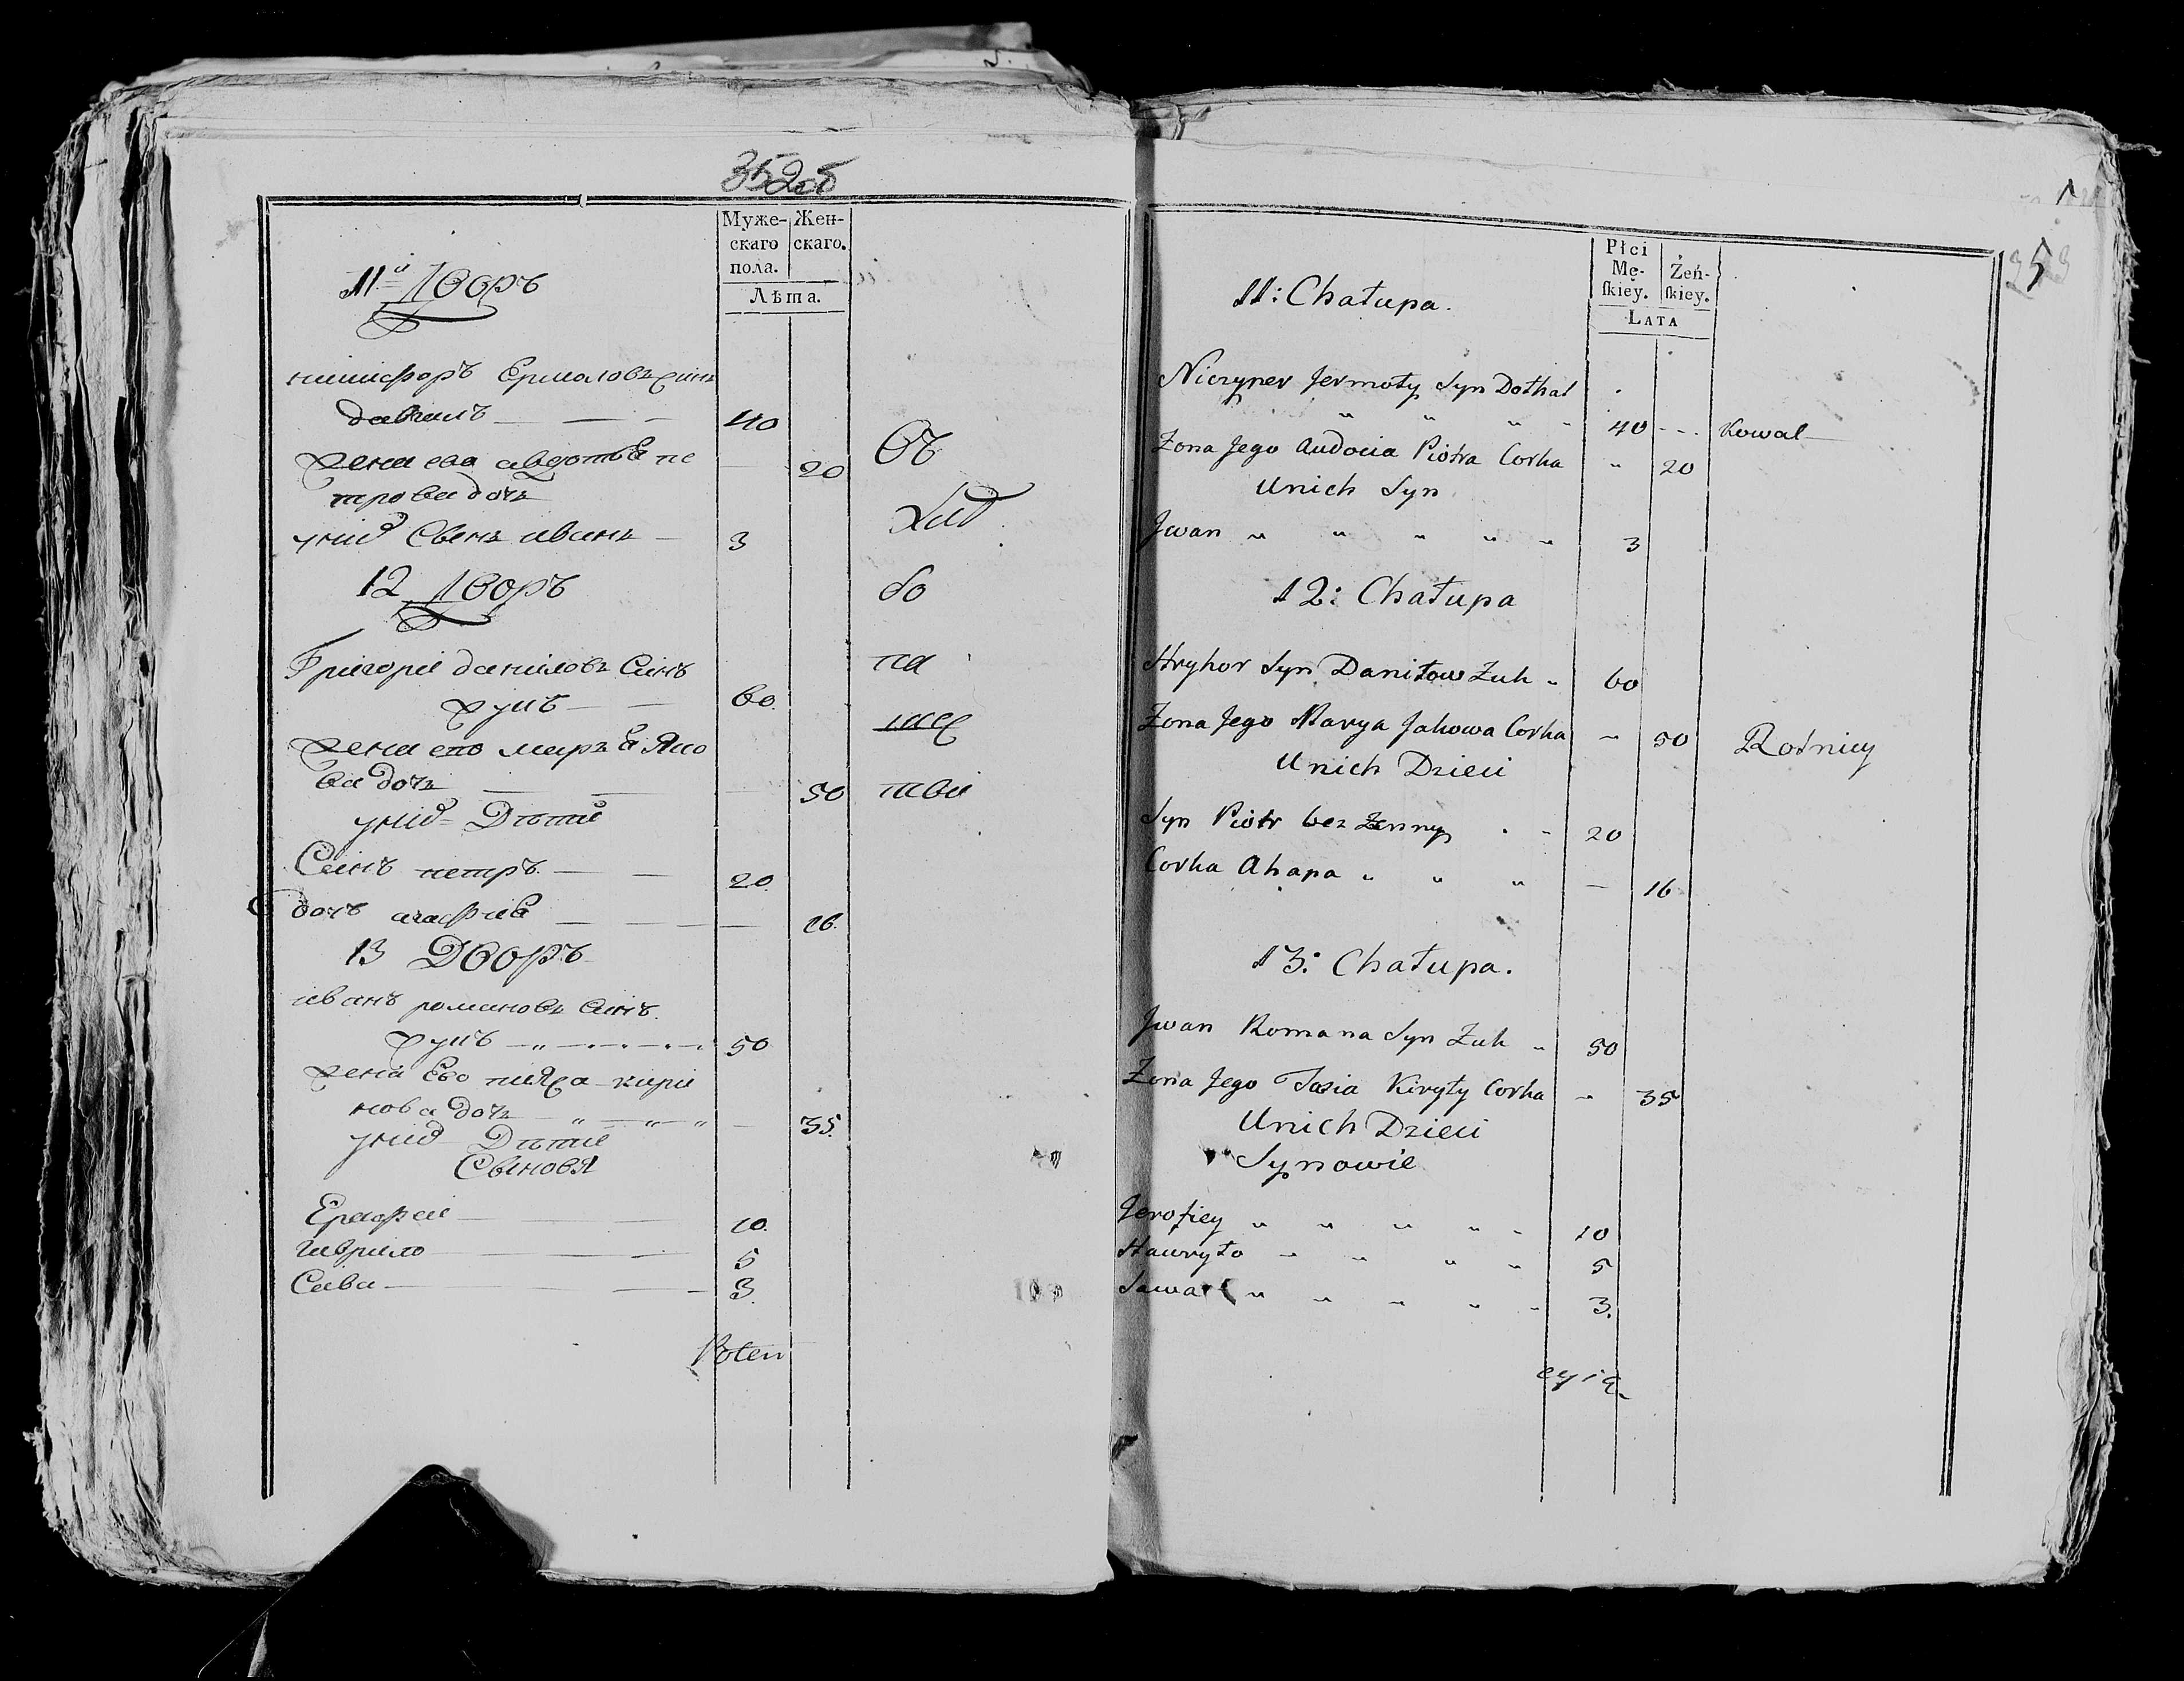 352об
Муже-
скаго
пола.
Жен-
скаго.
Лѣта.
11й Дворъ
никифоръ Ермаловъ синъ
40
жена ево авдотья пе
20
трова дочь
униⷯ Сынъ иванъ 3
12 Дворъ
Григорiй даниловъ Синъ
жукъ 60
жена его марья Яко
ва дочь 50
униⷯ Дѣти
Синъ петръ 20
дочь агафия 16
13 Дворъ
иванъ романовъ Синъ
жукъ 50
жена Ево
нова дочь 35.
униⷯ Дѣти
Сыновя
Ерофеи 10.
гаврило 5
Сава 3.
Въ
бо
па
Roten
353
Płci
Mę-
ſkiey.
Żeń-
ſkiey.
LATA
11: Chałupa.
Niczyper Jermoły Syn
40 Kowal
Zona Jego Audocia Piotra Corka 20
Unich Syn
Jwan 3
12: Chałupa
Hryhor Syn Daniłow Zuk 60
Zona Jego Marya Jakowa Corka 50 Rolnicy
Unich Dzieci
Syn Piotr bez Zenny 20
Corka Ahapa 16
13: Chałupa.
Jwan Romana Syn Zuk 50
Zona Jego Tasia Kiryły Corka 35
Unich Dzieci
Synowie
Jerofiey 10
Hawryło 5
Sawa 3.
cyią